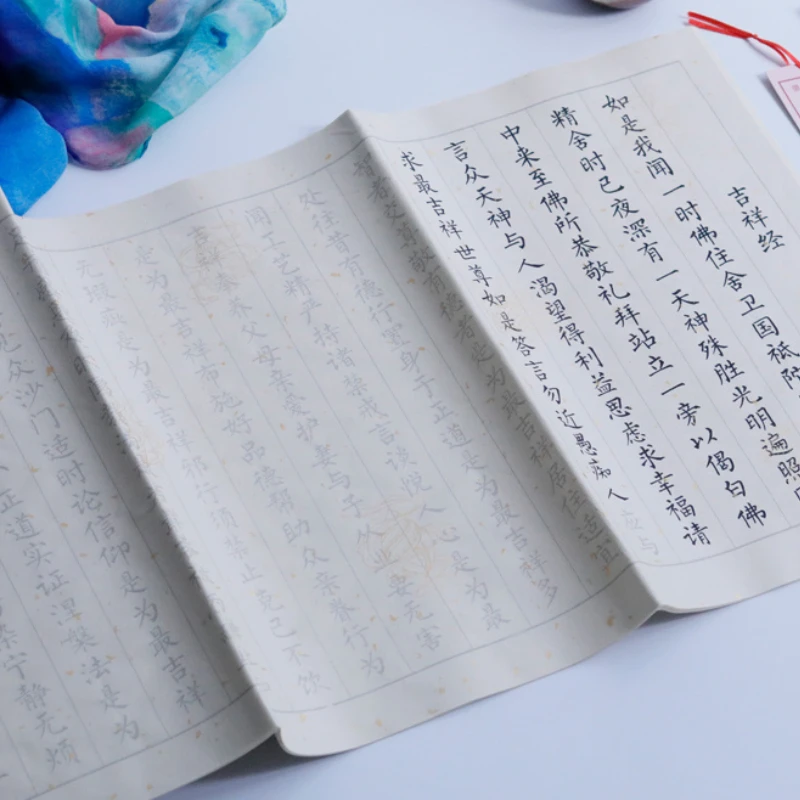 吉祥经
如是我闻一时佛住舍卫国祇陀
精舍时已夜深有一天神殊胜光明遍照
中来至佛所恭敬礼拜站立一旁以偈白佛
言众天神与人渴望得利益思虑求幸福请
求最吉祥 世尊如是答言勿近愚痴人 应与
智者交尊敬有德者是为最吉祥居住适宜
处往昔有德行置身于正道是为最吉祥多
闻工艺精严持诸禁戒言谈悦人心是为最
吉祥奉养父母亲爱护妻与子从业要无害
是为最吉祥布施好品德帮助众亲眷行为
无瑕疵是为最吉祥邪行须禁止克己不饮
见众沙门适时论信仰是为最吉祥
正道实证涅槃法是为
宁静无烦